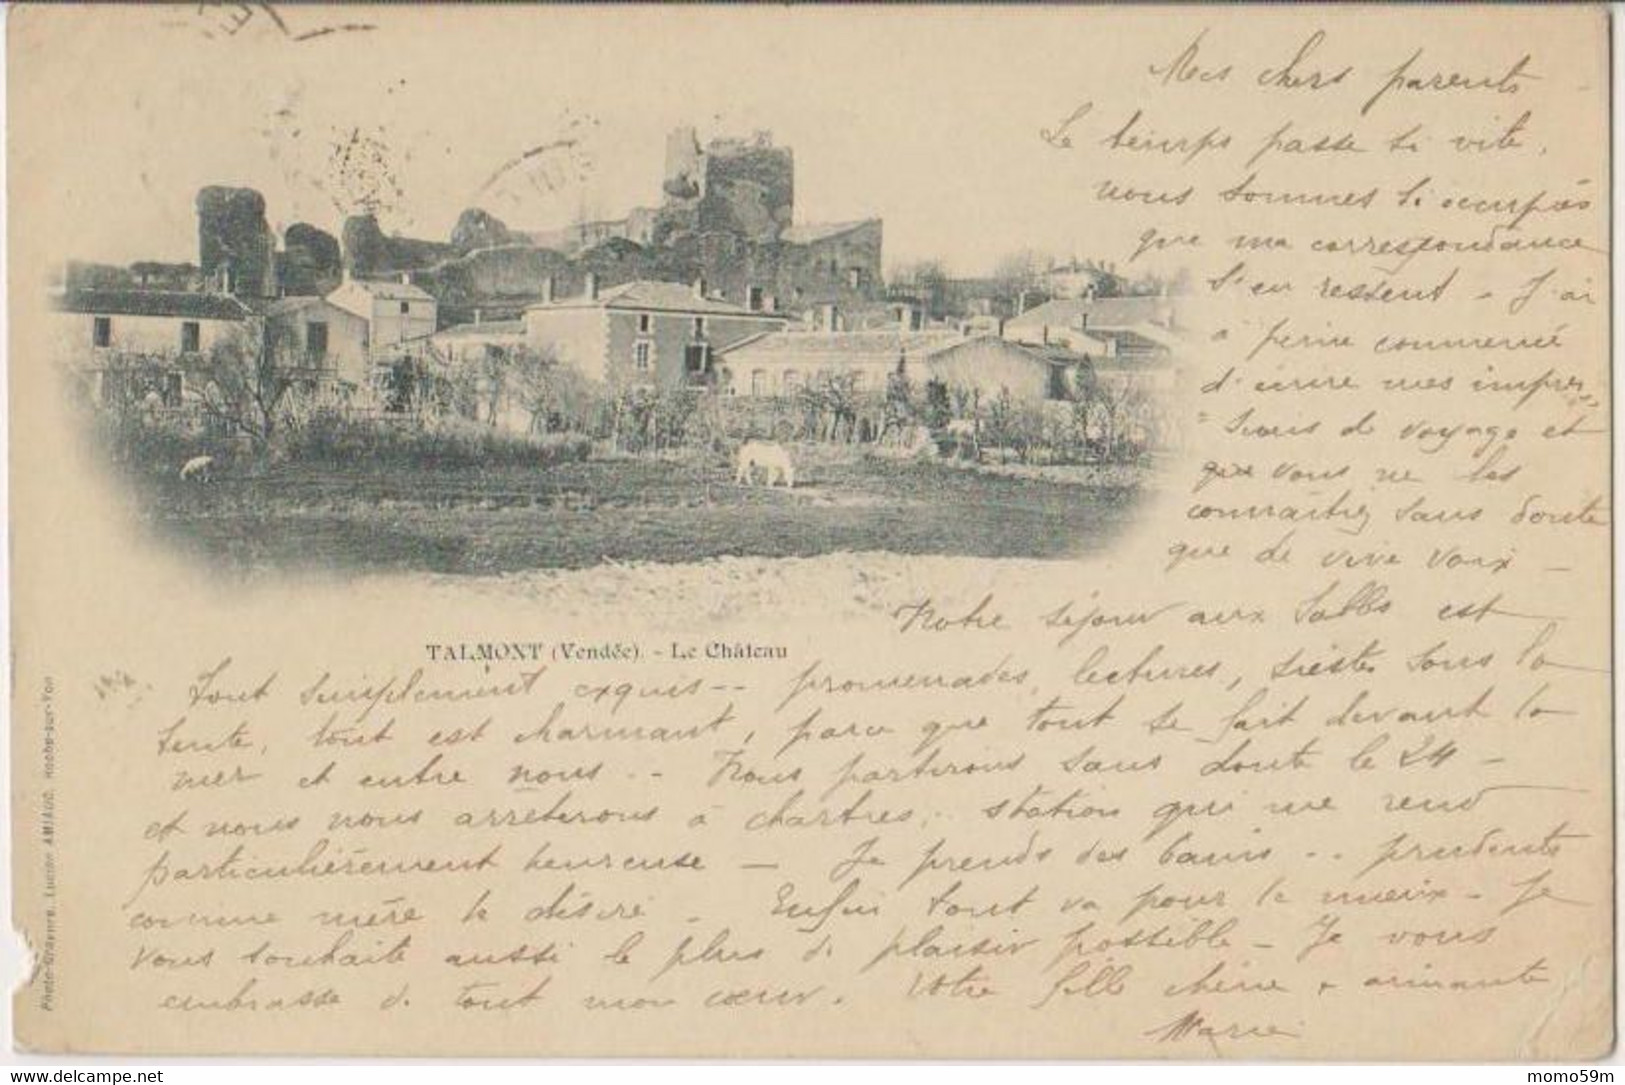 Mes chers parents -
Le temps passe si vite,
nous sommes si occupés
que ma correspondance
s'en ressent - J'ai
à peine commencé
d'écrire mes impres
=sions de voyage et
que vous ne les
connaîtrez sans doute
que de vive voix -
Notre séjour aux Sables est
TALMONT (Vendée). - Le Château
tout simplement exquis -- promenades, lectures, sieste sous la
tente, tout est charmant, parce que tout se fait devant la
mer et entre nous -- Nous partirons sans doute le 24 -
et nous nous arrêterons à Chartres, - station qui me rend
particulièrement heureuse - Je prends des bains -- prudente
comme mère le désire - Enfin tout va pour le mieux - Je
vous souhaite aussi le plus de plaisir possible - Je vous
embrasse de tout mon cœur. Votre fille chérie & aimante
Marie
Photo-Gravure, Lucien AMIAUD, Roche-sur-Yon
delcampe.net
momo59m